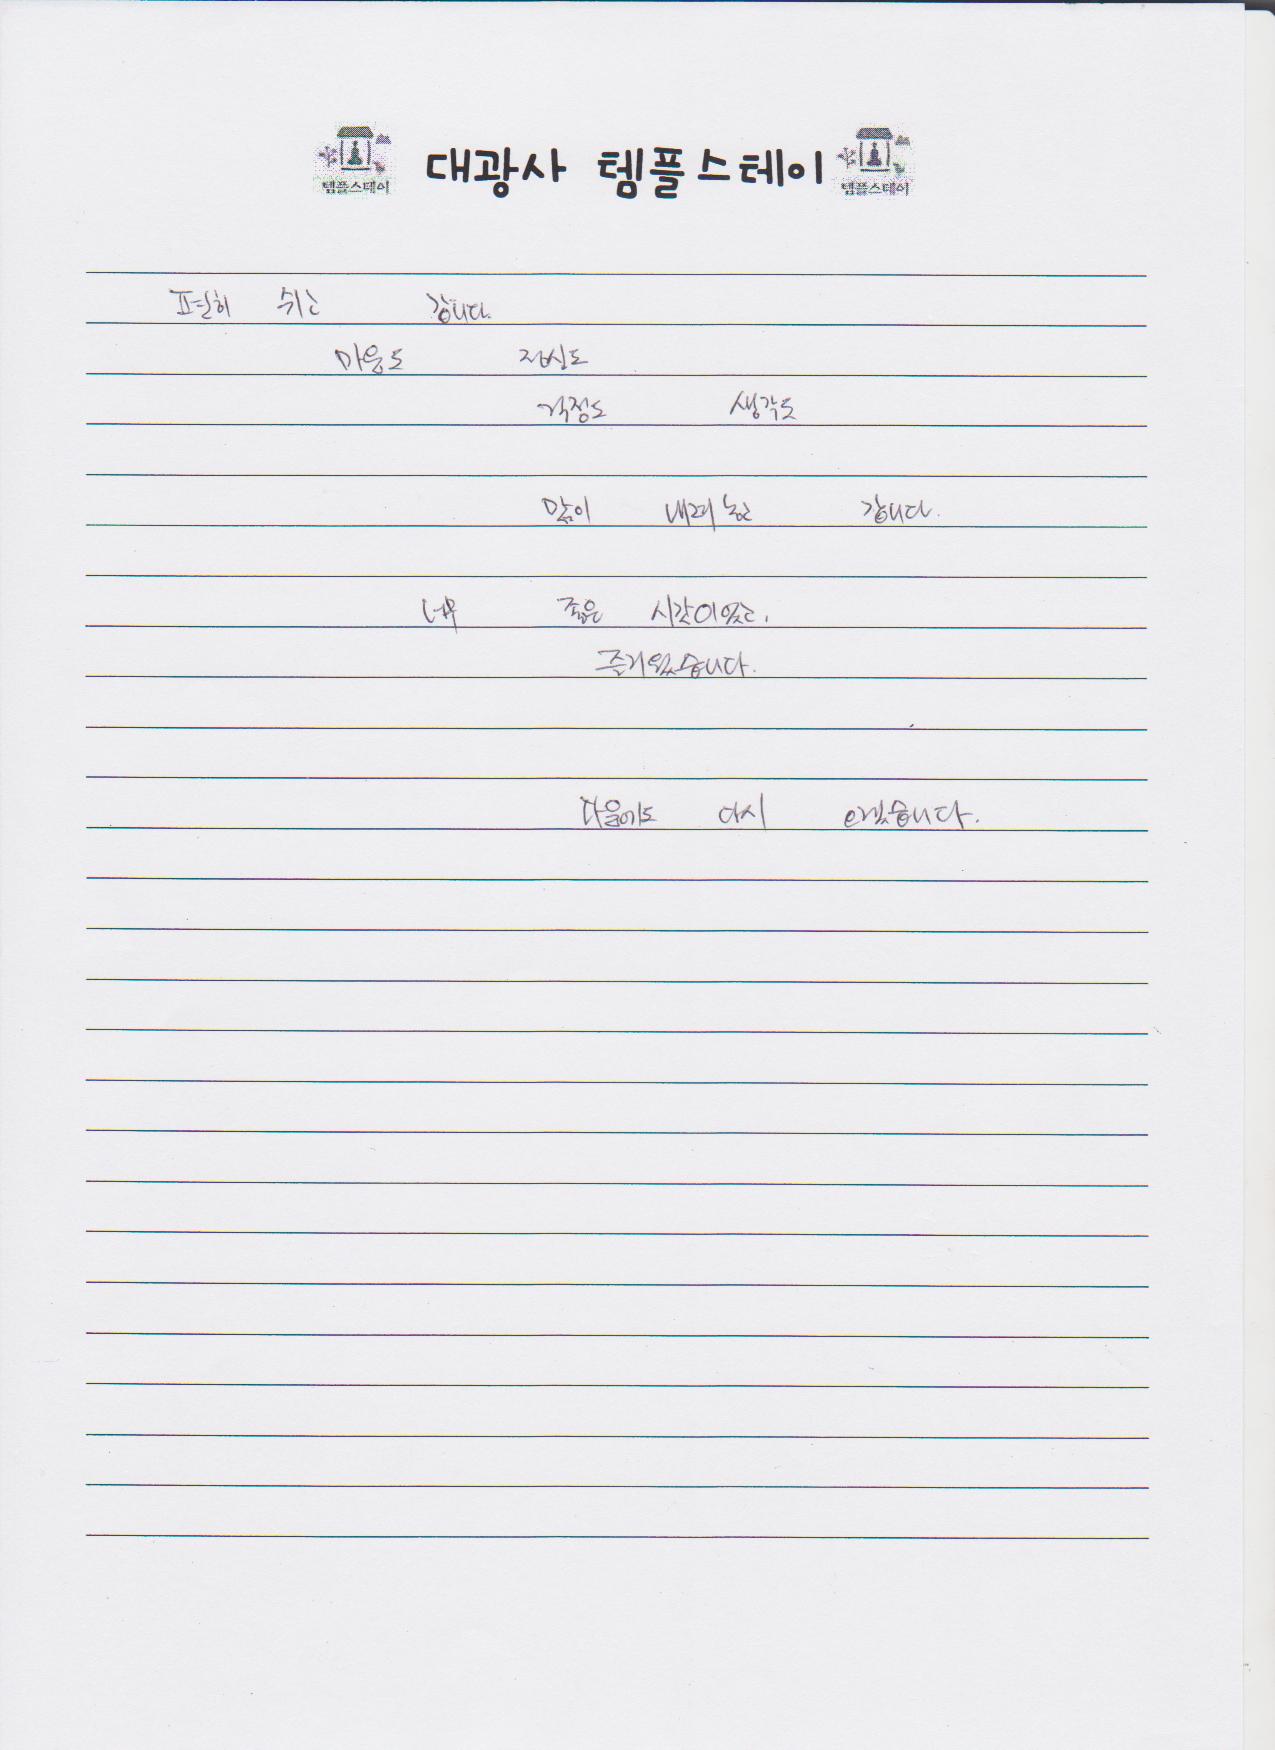 템플스테이 대광사 템플스테이 템플스테이
편히 쉬고 갑니다.
마음도 정신도
걱정도 생각도
많이 내려놓고 갑니다.
너무 좋은 시간이었고,
즐거웠습니다.
다음에도 다시 오겠습니다.